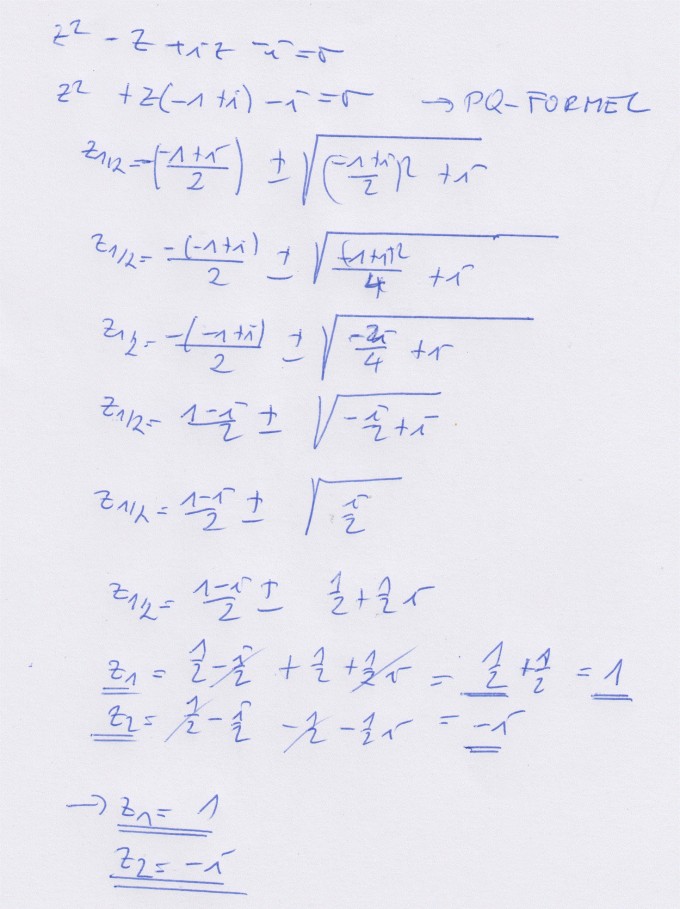 z² - z + iz - i = 0
z² + z(-1+i) - i = 0 → PQ-FORMEL
z1/2 = -(-1+i/2) ± √((-1+i/2)² + i)
z1/2 = -(-1+i)/2 ± √((-1+i)²/4 + i)
z1/2 = -(-1+i)/2 ± √(-2i/4 + i)
z1/2 = 1-i/2 ± √(-i/2 + i)
z1/2 = 1-i/2 ± √(i/2)
z1/2 = 1-i/2 ± 1/2 + 1/2 i
z1 = 1/2 - i/2 + 1/2 + 1/2 i = 1/2 + 1/2 = 1
z2 = 1/2 - i/2 - 1/2 - 1/2 i = -i
→ z1 = 1
z2 = -i